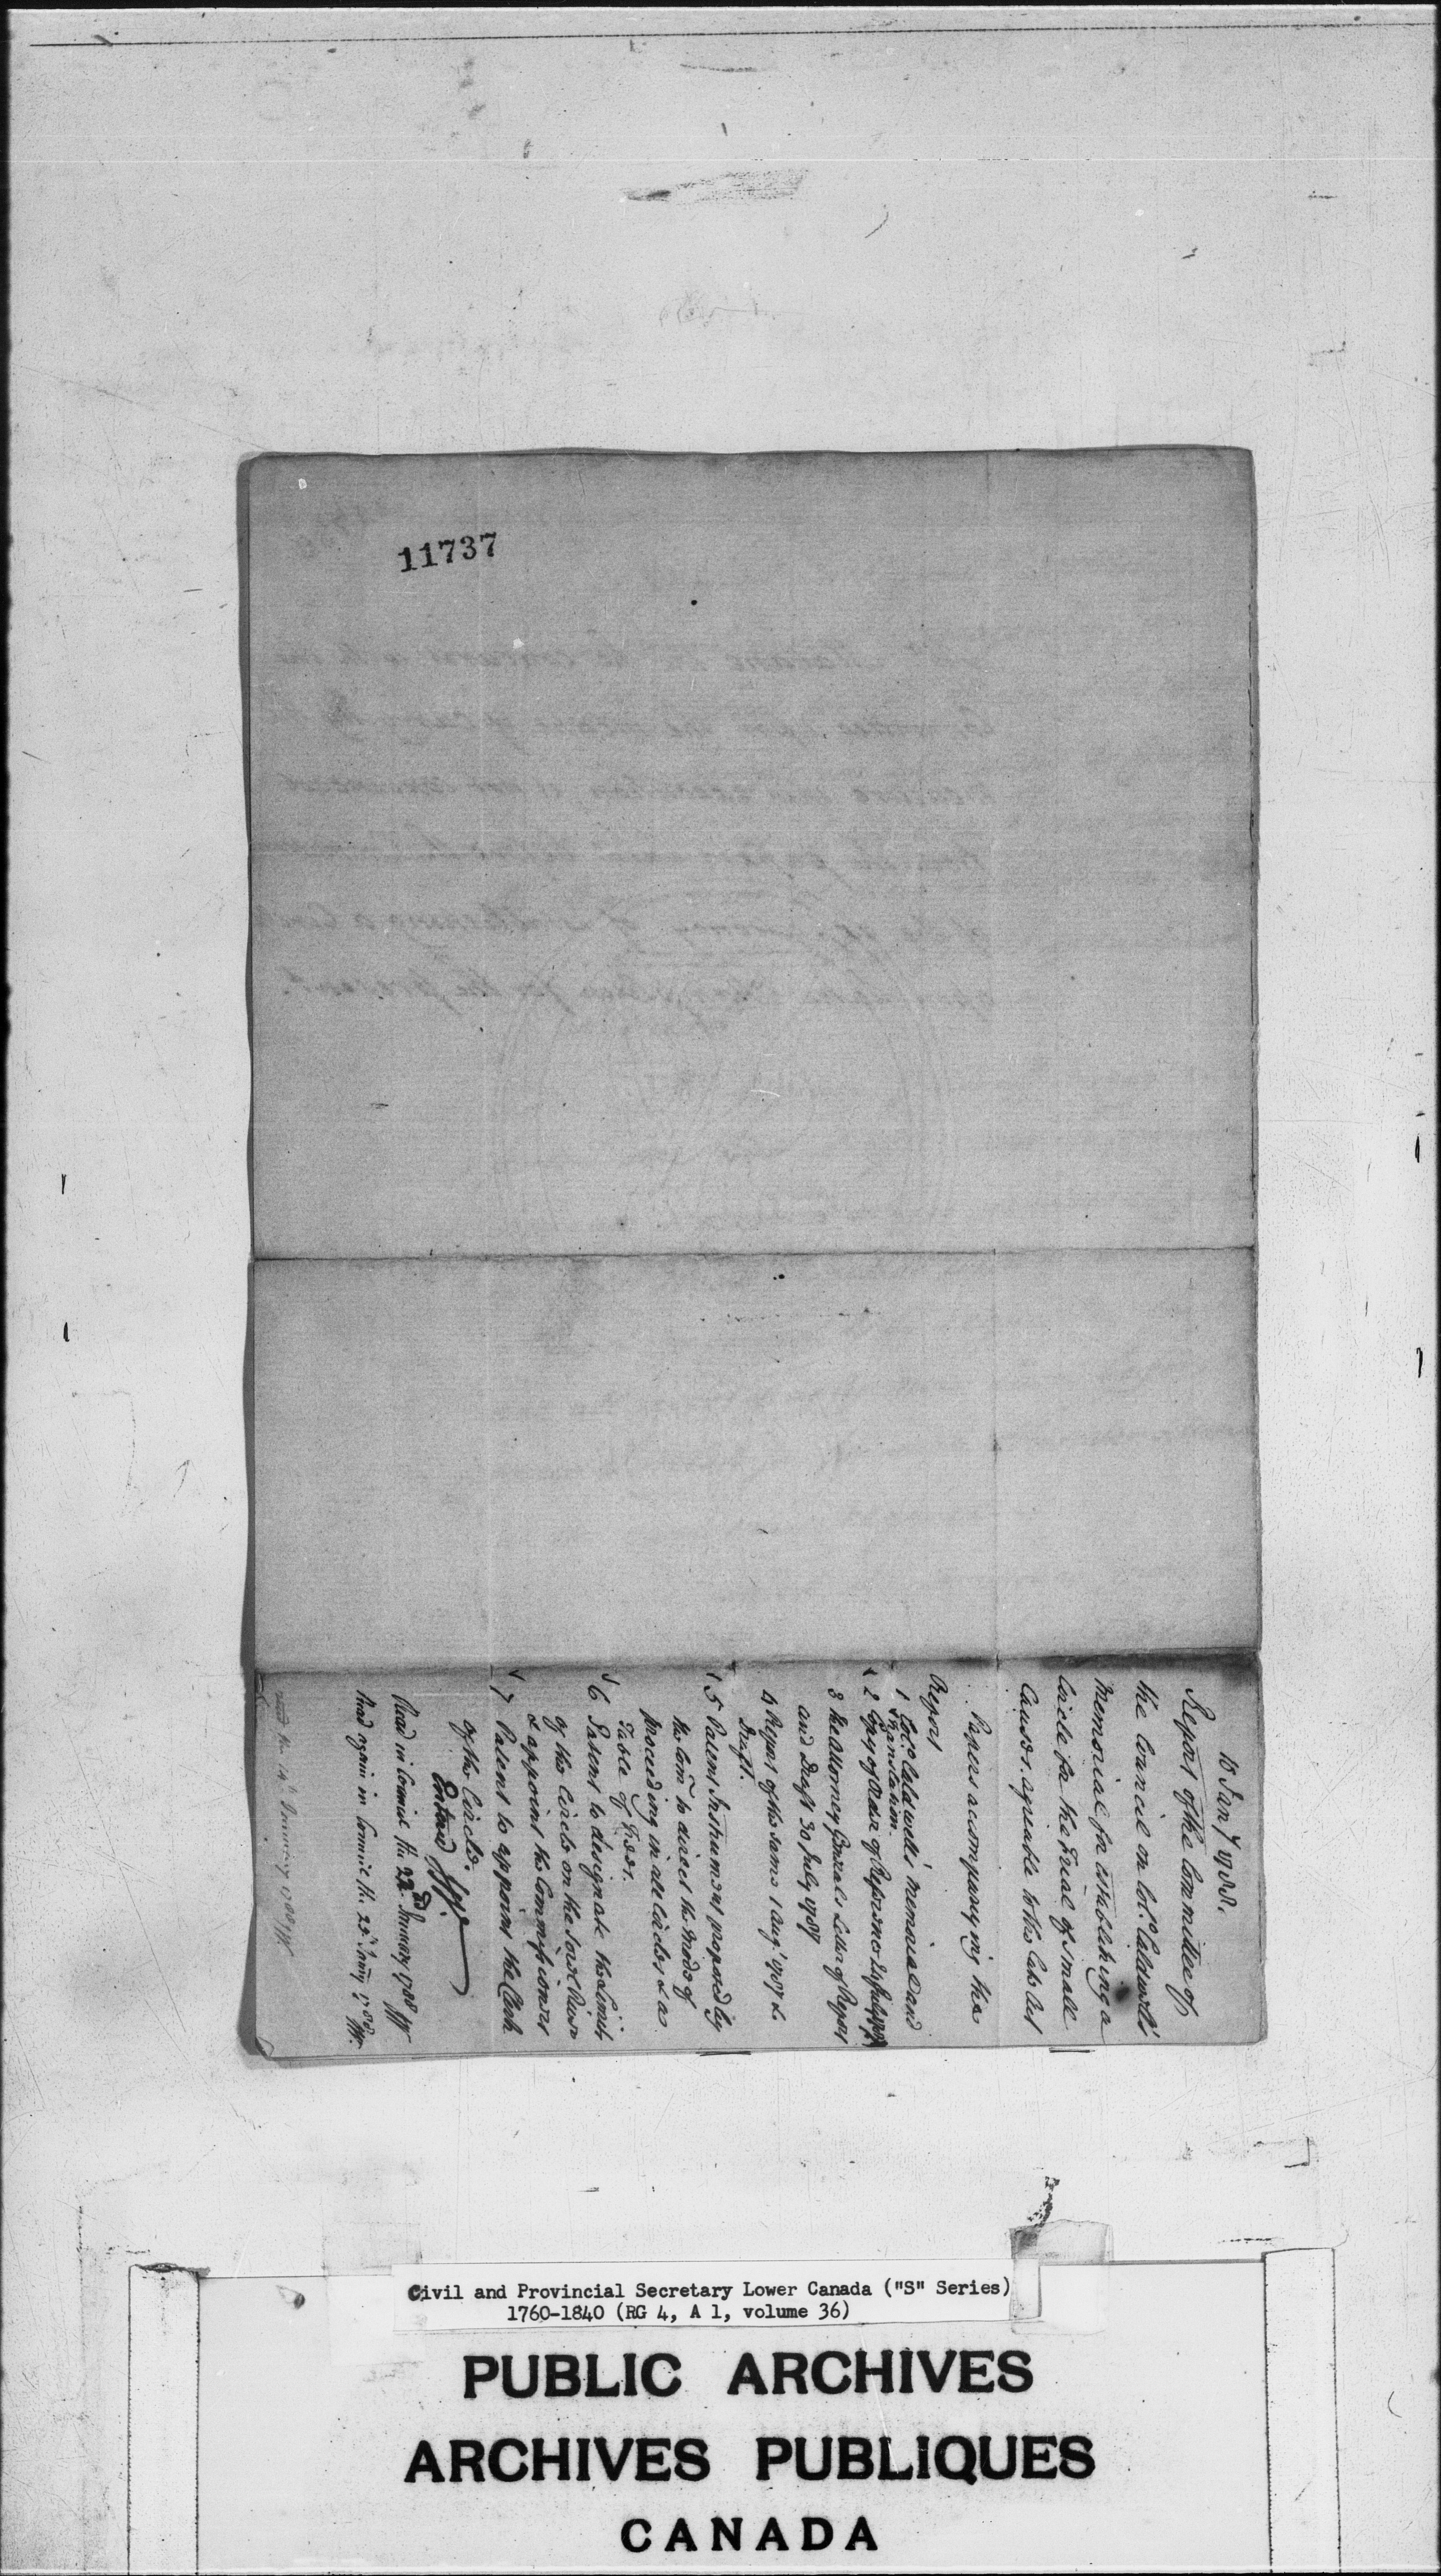 11737
10 Jany 1788.
Report of the Committee of
the Council on Col.º Caldwell's
Memorial for establishing a
Circle for the Trial of small
Causes. agreable to the late Act
Papers accompanying the
Report
1 Col.º Caldwell's memorial and
Translation.
2 Copy of Order of Reference
3 The Attorney Generals Letter of Report
and Draft 30 July 1787
4 Report of the same 1 Aug.t 1787 &
Draft.
5 Patent Instrument prepared by
the Com.e to direct the mode of
proceeding in all Circles & a
Table of Fees.
6 Patent to designate the Limits
of the Circle on the Sorel River
& appoint the Commissioners
7 Patent to appoint the Clerk
of the Circle.
Entered
Read in Council the 22nd January 1788
Read again in Council the 25 Janry 1788
14th January 1788
Civil and Provincial Secretary Lower Canada ("S" Series)
1760-1840 (RG 4, A 1, volume 36)
PUBLIC ARCHIVES
ARCHIVES PUBLIQUES
CANADA